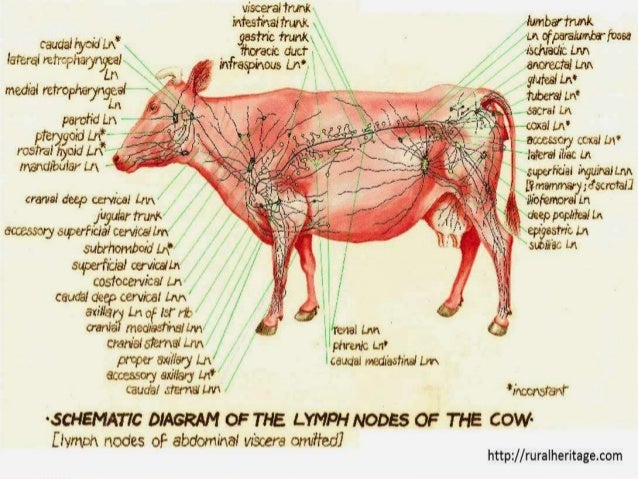 visceral trunk
intestinal trunk
gastric trunk
thoracic duct
infraspinous Ln*
caudal hyoid Ln*
lateral retropharyngeal
Ln
medial retropharyngeal
Ln
parotid Ln
pterygoid Ln*
rostral hyoid Ln*
mandibular Ln
cranial deep cervical Lnn
jugular trunk
accessory superficial cervical Lnn
subrhomboid Ln*
superficial cervical Ln
costocervical Ln
caudal deep cervical Lnn
axillary Ln of 1st rib
cranial mediastinal Lnn
cranial sternal Lnn
proper axillary Ln
accessory axillary Ln*
caudal sternal Lnn
lumbar trunk
Ln of paralumbar fossa
ischiadic Lnn
anorectal Lnn
gluteal Ln*
tuberal Ln*
sacral Ln
coxal Ln*
accessory coxal Ln*
lateral iliac Ln
superficial inguinal Lnn
[♀ mammary; ♂ scrotal]
iliofemoral Ln
deep popliteal Ln
epigastric Ln
subiliac Ln
renal Lnn
phrenic Ln*
caudal mediastinal Lnn
*inconstant
·SCHEMATIC DIAGRAM OF THE LYMPH NODES OF THE COW·
[lymph nodes of abdominal viscera omitted]
http://ruralheritage.com